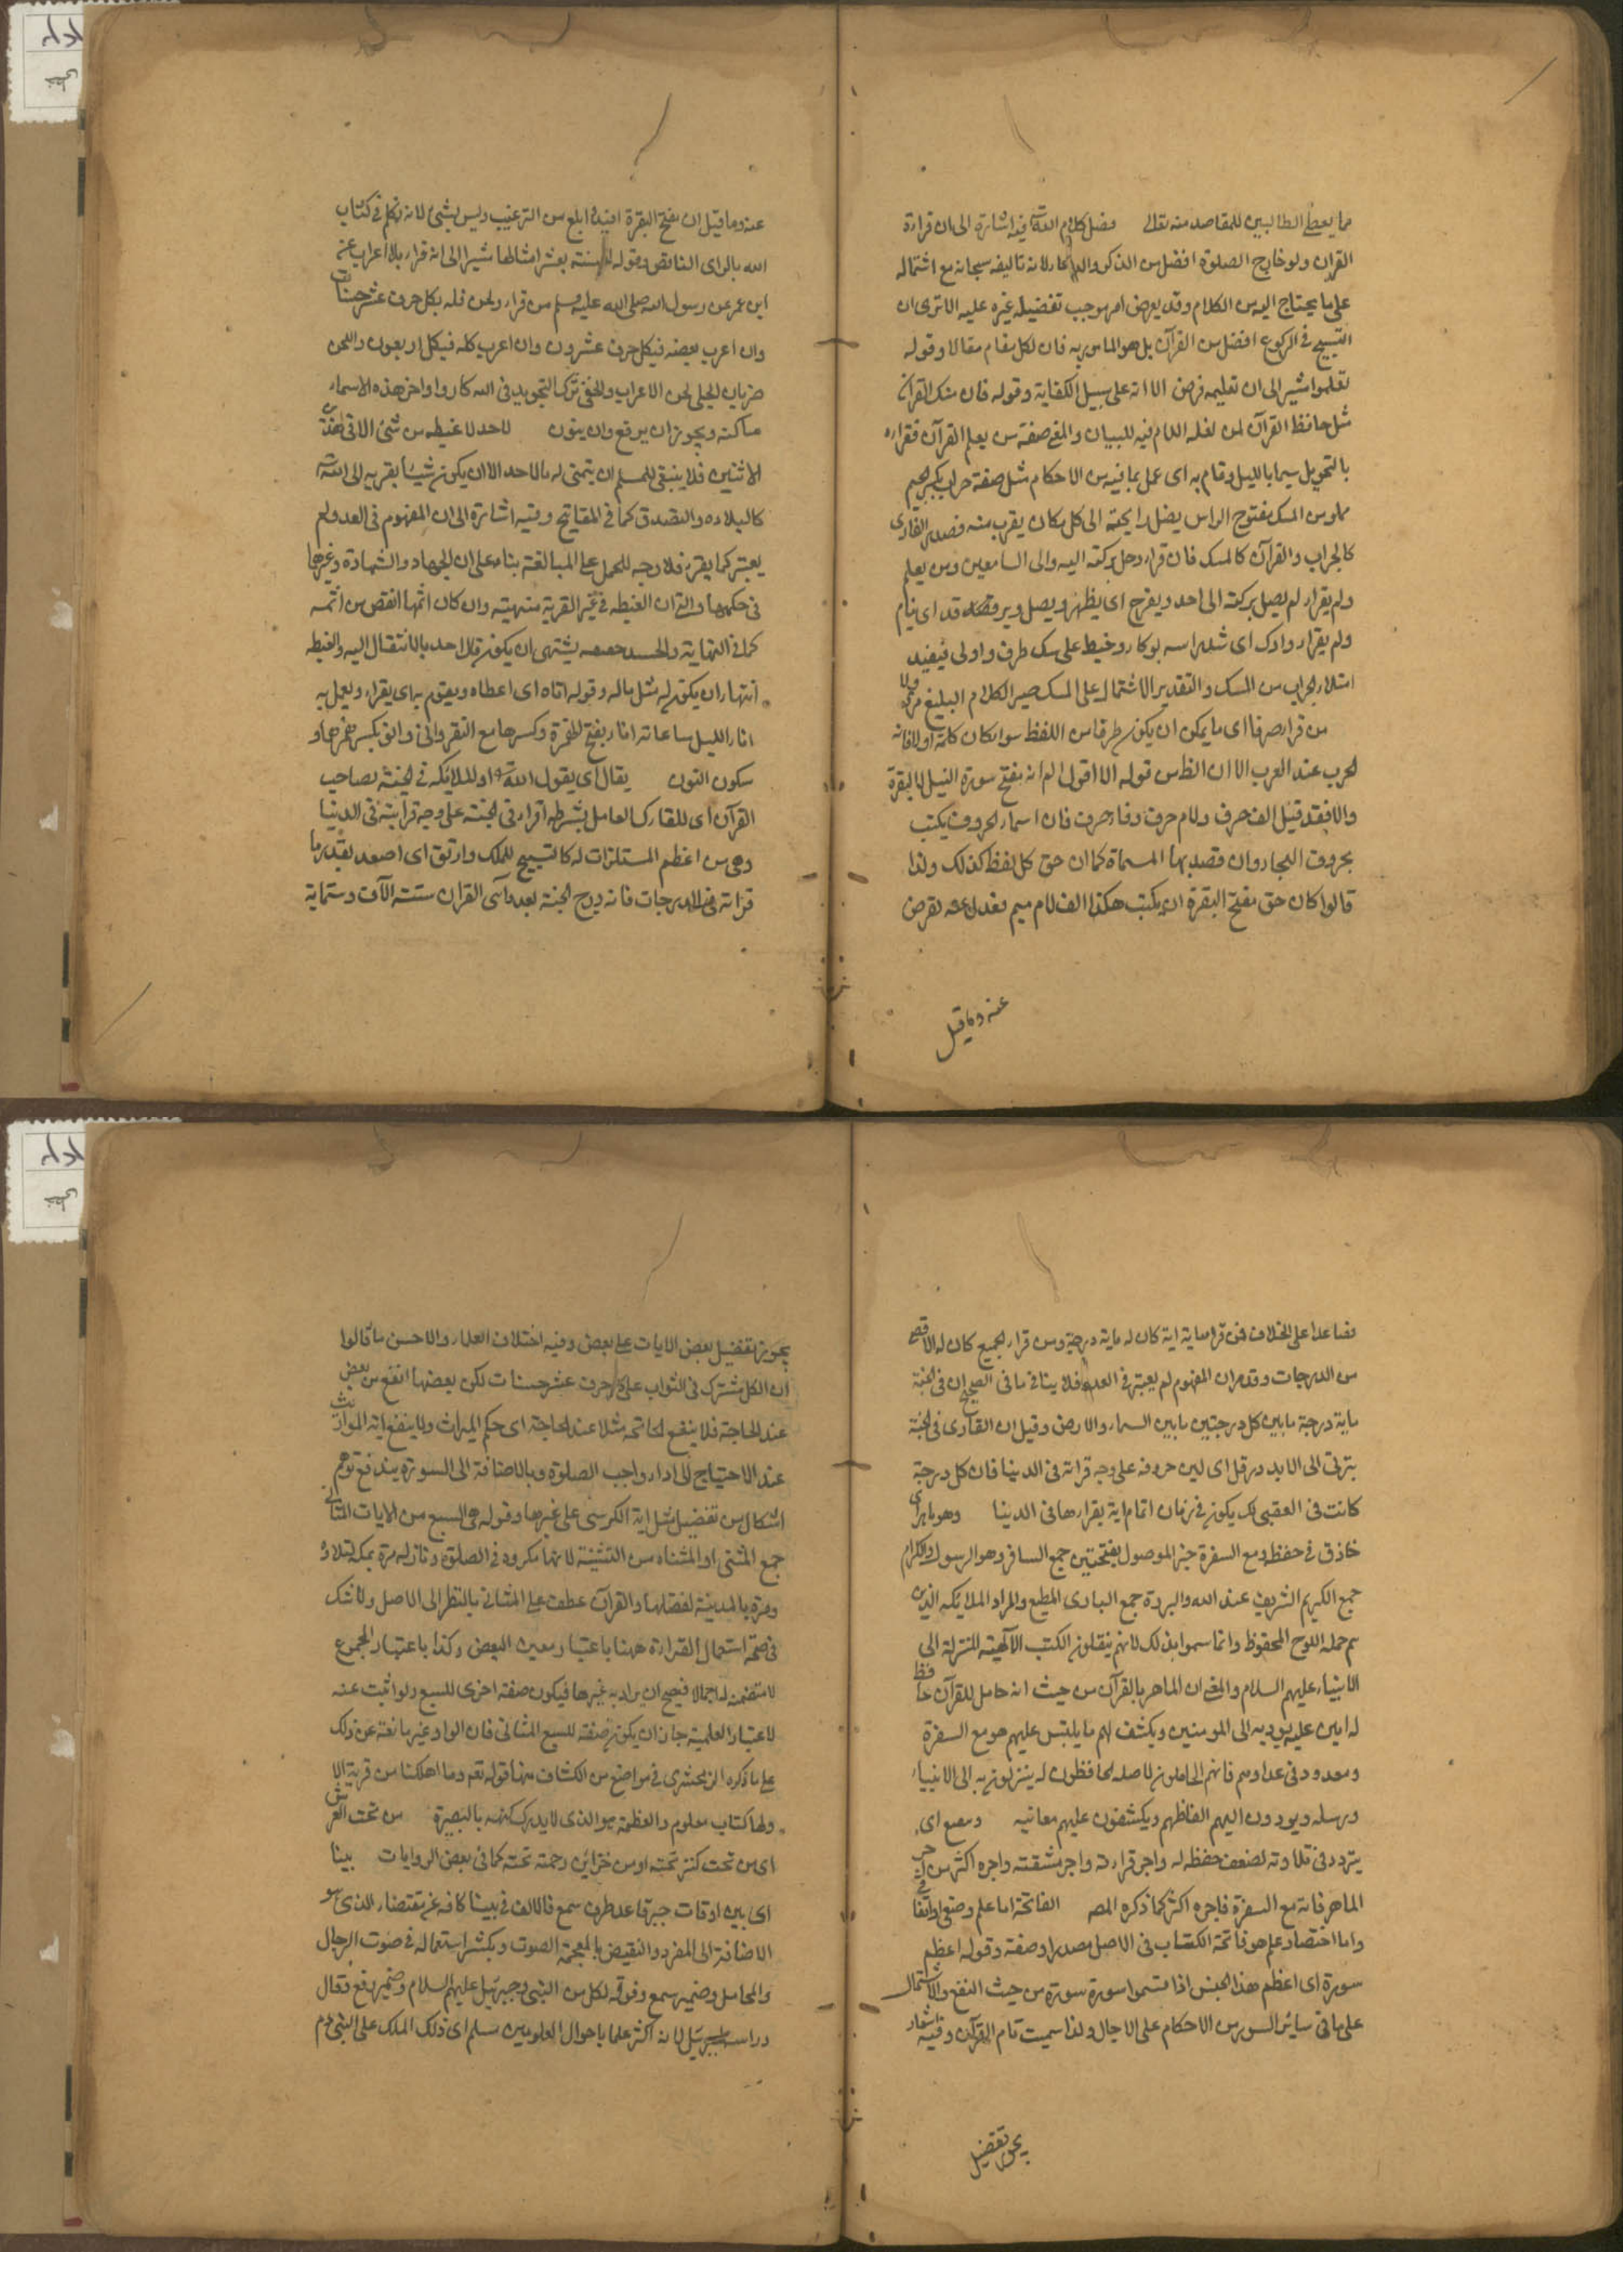 مما يعطي الطالبين للمقاصد منه تعالى فضل كلام الله فيه اشارة الى ان قراءة
القران ولو خارج الصلوة افضل من الذكر والدعاء لانه تاليفه سبحانه مع اشتماله
على ما يحتاج اليه من الكلام وقد يعرض امر يوجب تفضيله غيره عليه الا ترى ان
التسبيح في الركوع افضل من القرآن بل هو المامور به فان لكل مقام مقالا وقوله
تعلموا شير الى ان تعليمه فرض الا انه على سبيل الكفاية وقوله فان مثل القرآن
مثل حافظ القرآن لمن تعلم اللام فيه للبيان والمغ صفة من يعلم القرآن فقراءه
بالتحويل سيما بالليل وقام به اى عمل بما فيه من الاحكام مثل صفة جراب بكسر الجيم
مملو من المسك مفتوح الراس يصل رايحته الى كل مكان يقرب منه فصدر القارى
كالجراب والقرآن كالمسك فان قراء وصل بركته اليه والى السامعين ومن يعلم
ولم يقراء لم يصل بركته الى احد ويفرح اى يظهر ويصل ويرقد اى ينام
ولم يقراء واوك اى شد راسه بوكاء وخيط على مسك ظرف واولى فيفيد
امتلاء الجراب من المسك والتقدير الاشتمال على المسك صير الكلام البليغ
من قراء حرفا اى ما يمكن ان يكون طرفا من اللفظ سوا كان كلمة اولا فانه
لحرب عند العرب الا ان الظ من قوله الا اقول الم انه مفتح سورة الفيل لا البقرة
والا فقد قيل الف حرف ولام حرف وفاء حرف فان اسماء الحروف يكتب
بحروف الهجاء وان قصد بها المسماة كما ان حق كل لفظ كذلك ولذا
قالوا كان حق مفتح البقرة ان يكتب هكذا الف لام ميم فعدل عنه بغرض
عنه وما قيل
عنه وما قيل ان مفتح البقرة افيد ابلغ من الترغيب وليس بشئ لانه تكلم في كتاب
الله بالراى الناقص وقوله الحسنة بعشر امثالها شير الى انه قراء بلا اعراب عن
ابن عمر عن رسول الله صلى الله عليه وسلم من قراء ولحن فله بكل حرف عشر حسنات
وان اعرب بعضه فبكل حرف عشرون وان اعرب كله فبكل اربعون واللحن
ضربان الجلى لحن الاعراب والخفى ترك التجويد في الله كاد واواخر هذه الاسماء
ساكنه ويجوز ان يرفع وان ينون لا حد لا غبطه من شئ الا في
الاثنين فلا ينبغى للمسلم ان يتمنى له مالا حد الا ان يكون شيئا يقربه الى الله
كالبلاده والتصدق كما في المفاتيح وفيه اشارة الى ان المفهوم في العدد لم
يعتبر كما يقرر فلا وجه للحمل على المبالغة بناء على ان الجهاد والشهادة وغيرها
في حكمهما والتى ان الغبطه في غير القربة منهيته وان كان اثمها انقص من اثمه
كما في النهاية والحسد يشتهى ان يكون مالا حد بالانتقال اليه والغبطه
اشتهاء ان يكون له مثل ماله وقوله اتاه اى اعطاه ويقوم به اى يقراء ويعمل به
اناء الليل ساعاته اناء بفتح الهمزة وكسرها مع القصر وانى وانو بكسر همزها و
سكون النون يقال اى يقول الله او الملائكه في الجنة لصاحب
القرآن اى للقارى العامل بشرطه اقراء في الجنة على وجه قراءته في الدنيا
وهى من اعظم المستلذات له كالتسبيح للملك وارتق اى اصعد بقدر ما
قراته في الدرجات فانه درج الجنة بعدد آى القران ستة الآف وستماية
فصاعدا على الخلاف فمن قرا ماية اية كان له ماية درجة ومن قراء الجميع كان له الاقصى
من الدرجات وقد مر ان المفهوم لم يعتبر في العدد فلا ينافي ما في الصحيح ان في الجنة
ماية درجة ما بين كل درجتين ما بين السماء والارض وقيل ان القارى في الجنة
يترقى الى الابد ورتل اى لين حروفه على وجه قراته في الدنيا فان كل درجة
كانت في العقبى لك يكون في زمان اتمام اية يقراءها في الدنيا وهو ماهر اى
حاذق في حفظه مع السفرة خبر الموصول بفتحتين جمع السافر وهو الرسول والكرام
جمع الكريم الشريف عند الله والبررة جمع البارى المطيع والمراد الملايكه الذين
هم حمله اللوح المحفوظ وانما سموا بذلك لانهم ينقلون الكتب الآلهية المنزلة الى
الانبياء عليهم السلام والمغ ان الماهر بالقرآن من حيث انه حامل للقرآن حافظ
له امين عليه يوديه الى المومنين ويكشف لهم ما يلتبس عليهم هو مع السفرة
ومعدود في عدادهم فانهم الحاملون لاصله الحافظون له ينزلون به الى الانبياء
ورسله ويودون اليهم الفاظهم ويكشفون عليهم معانيه ومعنى اى
يتردد في تلاوته لضعف حفظه له واجر قراءته واجر مشقته واجره اكثر من اجر
الماهر فانه مع السفرة فاجره اكثر كما ذكره المصـ الفاتحة اما علم وضعى او اتفاقى
واما اختصار علم هو فاتحة الكتاب في الاصل مصدر او صفة وقوله اعظم
سورة اى اعظم هذا الجنس اذا قسموا سورة سورة من حيث النفع والاشتمال
على ما في سائر السور من الاحكام على الاجمال ولذا سميت بام القرآن وفيه اشعار
يجوز تفضيل
يجوز تفضيل بعض الايات على بعض وفيه اختلاف العلماء والاحسن ما قالوا
ان الكل مشترك في الثواب على كل حرف عشر حسنات لكن بعضها انفع من بعض
عند الحاجة فلا ينفع الفاتحة مثلا عند الحاجة اى حكم الميراث ولا ينفع اية المواريث
عند الاحتياج الى اداء واجب الصلوة وبالاضافة الى السورة يندفع توهم
اشكال من تفضيل مثل اية الكرسى على غيرها وقوله هى السبع من الايات المثانى
جمع المثنى او المثناه من التثنية لانها مكررة في الصلوة ونازله مرة بمكه لتلاوة
ومرة بالمدينة لفضلها والقرآن عطف على المثانى بالنظر الى الاصل ولا شك
في صحة استعمال القراءة ههنا باعتبار معين البعض وكذا باعتبار المجموع
لا متضمنه له اجمالا فيصح ان يراد به غيرها فيكون صفة اخرى للسبع ولو اثبت عنه
لا عتبار العلمية جاز ان يكون صفة للسبع المثانى فان الواو غير مانعة عن ذلك
على ما ذكره الزمخشرى في مواضع من الكشاف منها قوله تعـ وما اهلكنا من قرية الا
ولها كتاب معلوم والعظمة هو الذى لا يدرك كنهه بالبصيرة من تحت العرش
اى من تحت كنز تحته او من خزاين رحمته تحته كما في بعض الروايات بينا
اى بين اوقات جبرئيل قاعد طرف سمع فالالف في بينا كافه عن مقتضاه الذى هو
الاضافة الى المفرد والنقيض بالمعجمة الصوت ويكثر استعماله في صوت الرحال
والمحامل وضمير سمع وفوقه لكل من النبى وجبرئيل عليهم السلام وضمير رفع فقال
وراسه لجبرئيل لانه اكثر علما باحوال العلويين سلم اى ذلك الملك على النبى عم